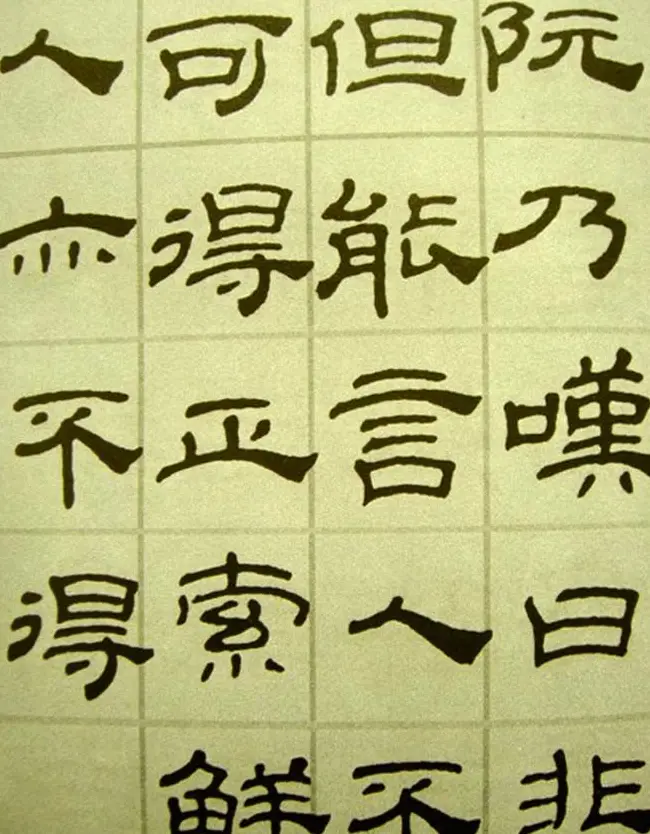 阮乃嘆曰非
但能言人不
可得正索解
人亦不得